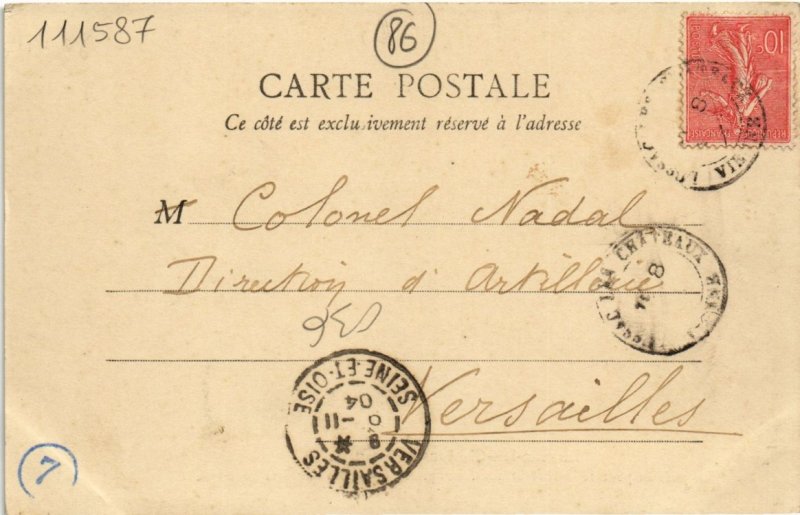 111587
86
10c
POSTES
CARTE POSTALE
Ce côté est exclusivement réservé à l'adresse
M Colonel Nadal
Direction d'Artillerie
Versailles
CHATEAUX
8
VERSAILLES
SEINE-ET-OISE
8
-11
04
7